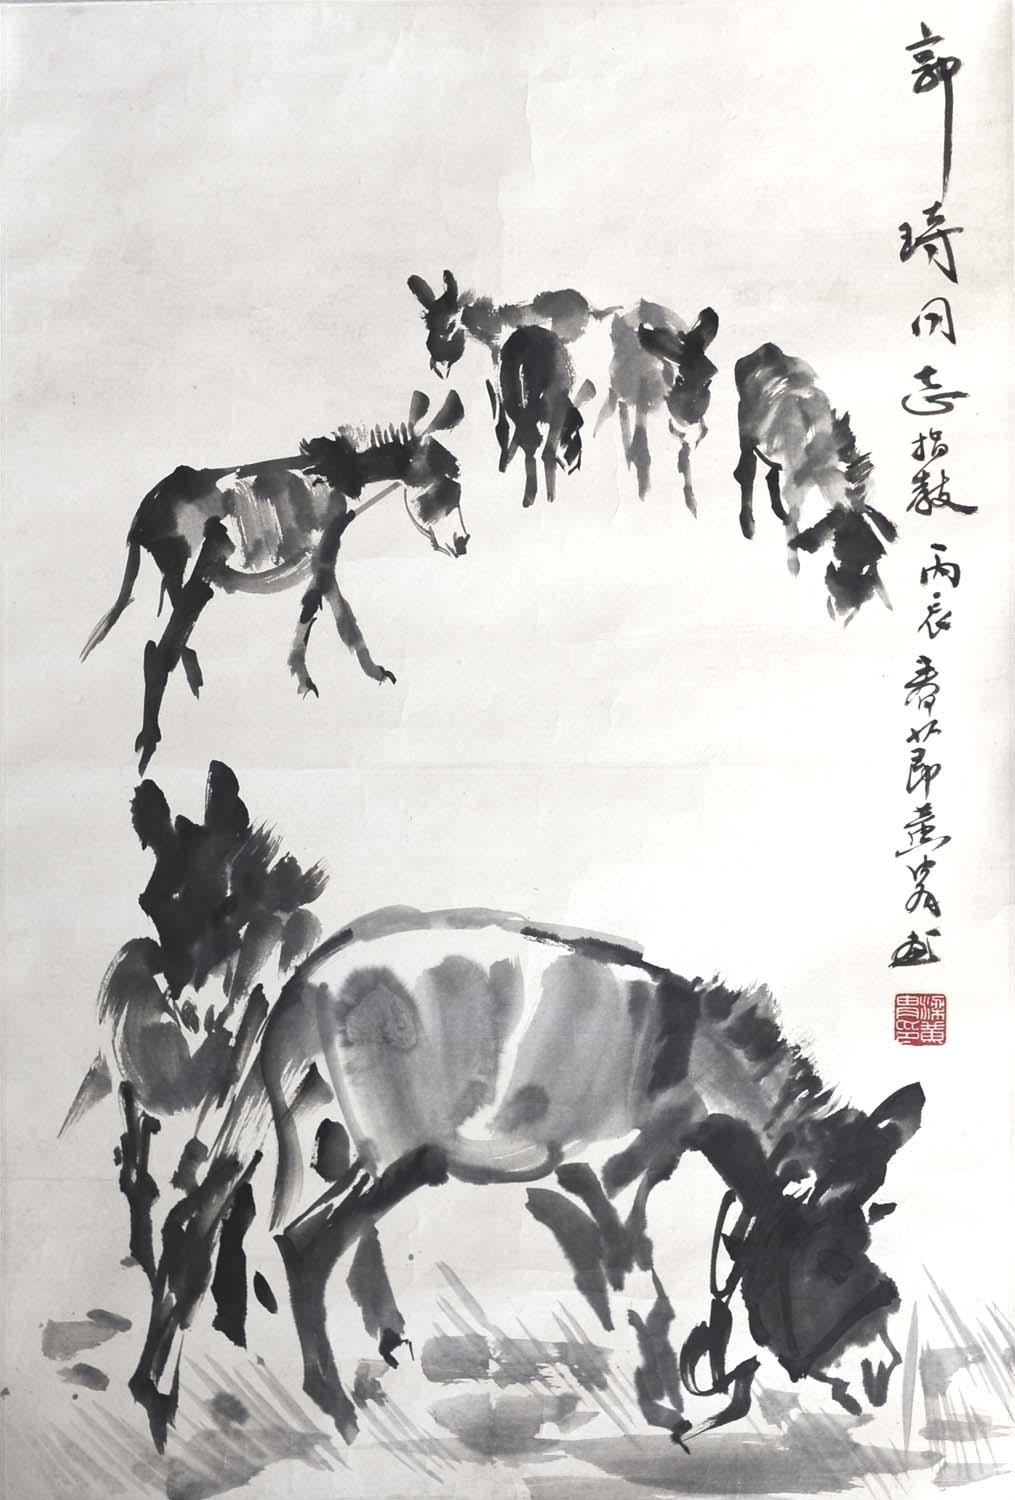 郭琦同志指教丙辰春节黄胄画
梁黄
胄印